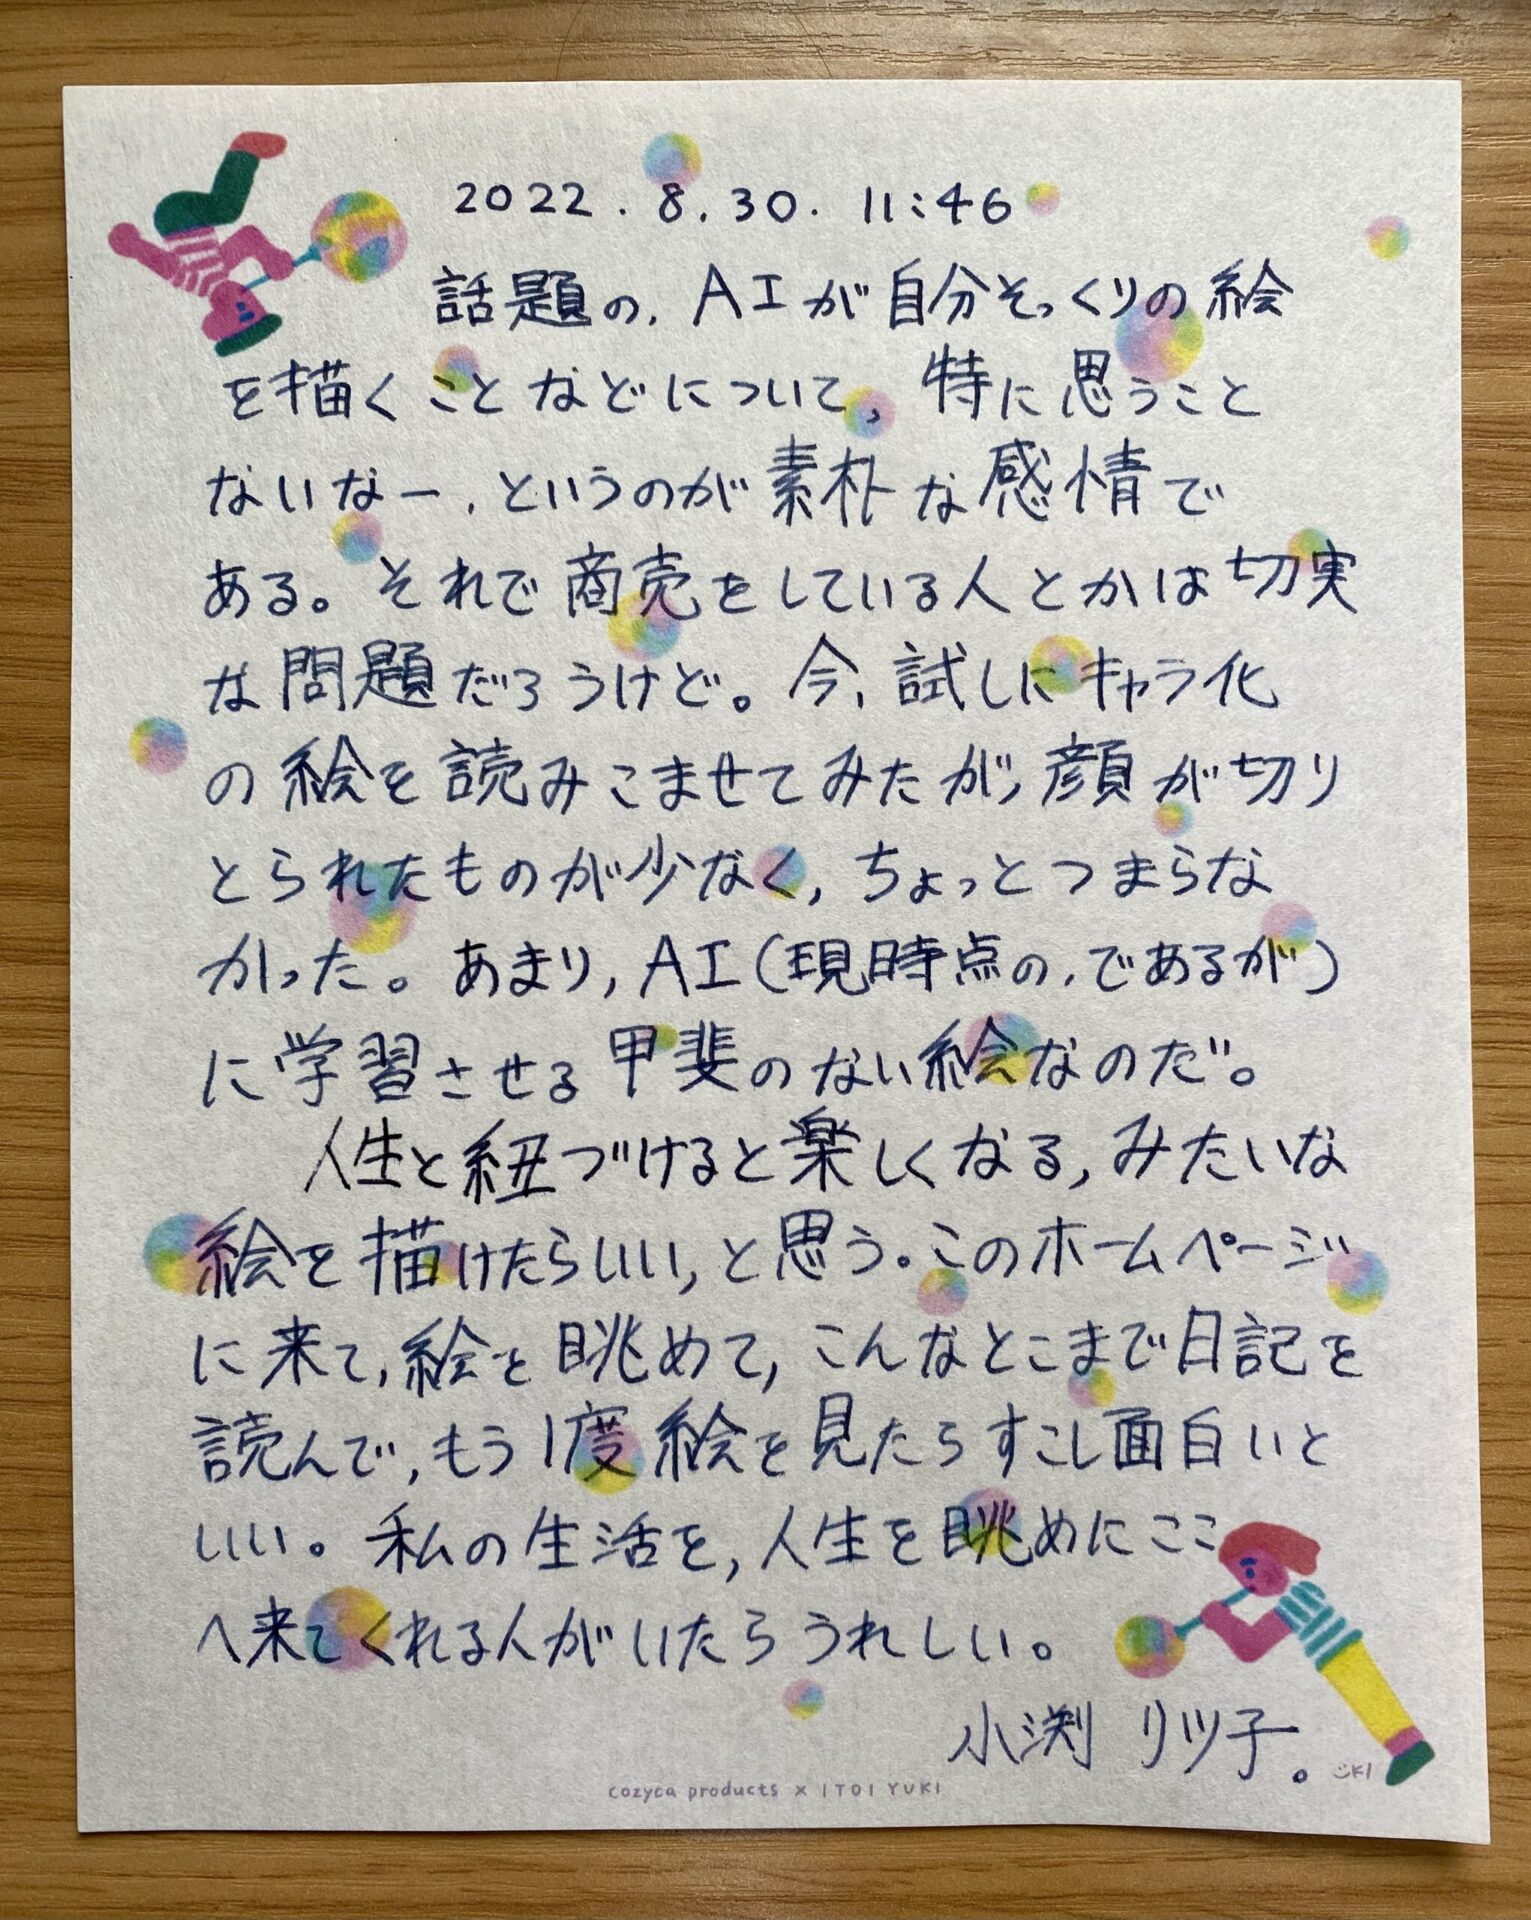 2022.8.30. 11:46
話題の、AIが自分そっくりの絵
を描くことなどについて、特に思うこと
ないなー、というのが素朴な感情で
ある。それで商売をしている人とかは切実
な問題だろうけど。今、試しにキャラ化
の絵を読みこませてみたが、顔が切り
とられたものが少なく、ちょっとつまらな
かった。あまり、AI(現時点の、であるが)
に学習させる甲斐のない絵なのだ。
人生と紐づけると楽しくなる、みたいな
絵を描けたらいい、と思う。このホームページ
に来て、絵を眺めて、こんなとこまで日記を
読んで、もう1度絵を見たらすこし面白いと
いい。私の生活を、人生を眺めにここ
へ来てくれる人がいたらうれしい。
小渕 リツ子。
cozyca products × ITOI YUKI